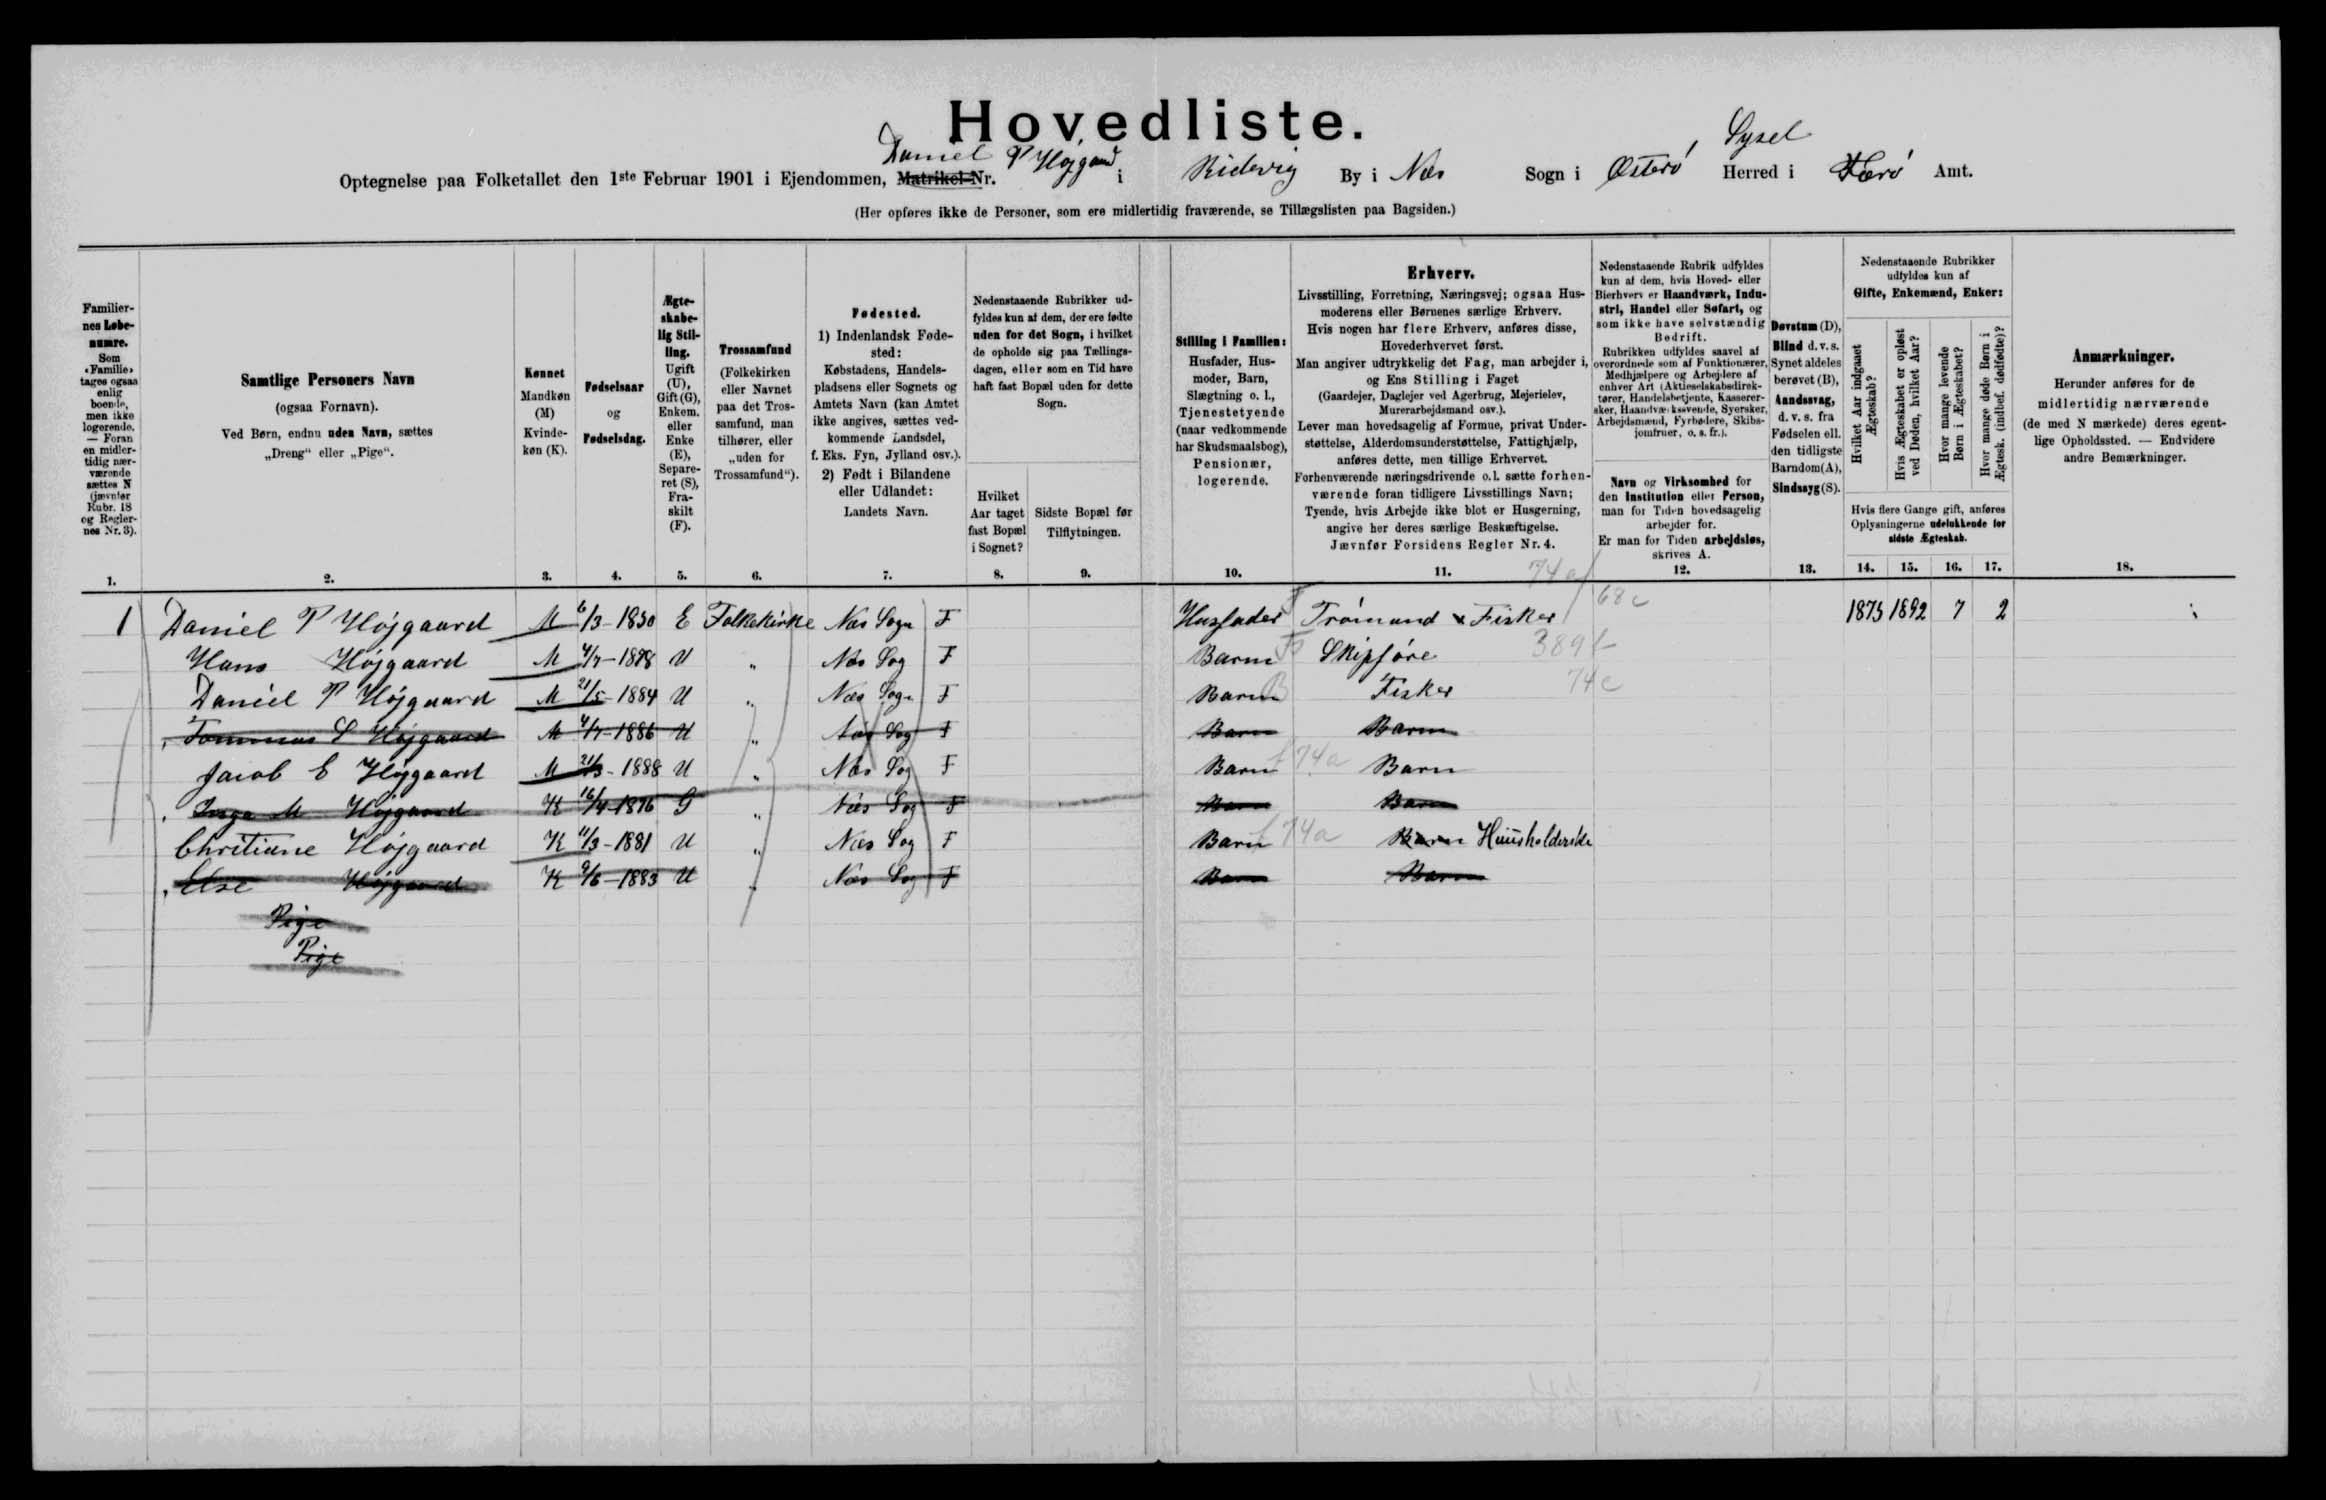 Hovedliste.
Optegnelse paa Folketallet den 1ste Februar 1901 i Ejendommen, Matrikel-Nr. Daniel P Højgaard i Ridevig By i Næs Sogn i Østerø Sysel Herred i Færø Amt.
(Her opføres ikke de Personer, som ere midlertidig fraværende, se Tillægslisten paa Bagsiden.)
Familiernes Løbenumre. Som «Familie» tages ogsaa enlig boende, men ikke logerende. — Foran en midlertidig nærværende sættes N (jævnfør Rubr. 18 og Reglernes Nr. 3).
Samtlige Personers Navn (ogsaa Fornavn). Ved Børn, endnu uden Navn, sættes „Dreng“ eller „Pige“.
Kønnet Mandkøn (M) Kvindekøn (K).
Fødselsaar og Fødselsdag.
Ægteskabelig Stilling. Ugift (U), Gift (G), Enkem. eller Enke (E), Separeret (S), Fraskilt (F).
Trossamfund (Folkekirken eller Navnet paa det Trossamfund, man tilhører, eller „uden for Trossamfund“).
Fødested. 1) Indenlandsk Fødested: Købstadens, Handelspladsens eller Sognets og Amtets Navn (kan Amtet ikke angives, sættes vedkommende Landsdel, f. Eks. Fyn, Jylland osv.). 2) Født i Bilandene eller Udlandet: Landets Navn.
Nedenstaaende Rubrikker udfyldes kun af dem, der ere fødte uden for det Sogn, i hvilket de opholde sig paa Tællingsdagen, eller som en Tid have haft fast Bopæl uden for dette Sogn.
Hvilket Aar taget fast Bopæl i Sognet?
Sidste Bopæl før Tilflytningen.
Stilling i Familien: Husfader, Husmoder, Barn, Slægtning o. l., Tjenestetyende (naar vedkommende har Skudsmaalsbog), Pensionær, logerende.
Erhverv. Livsstilling, Forretning, Næringsvej; ogsaa Husmoderens eller Børnenes særlige Erhverv. Hvis nogen har flere Erhverv, anføres disse, Hovederhvervet først. Man angiver udtrykkelig det Fag, man arbejder i, og Ens Stilling i Faget (Gaardejer, Daglejer ved Agerbrug, Mejerielev, Murerarbejdsmand osv.). Lever man hovedsagelig af Formue, privat Understøttelse, Alderdomsunderstøttelse, Fattighjælp, anføres dette, men tillige Erhvervet. Forhenværende næringsdrivende o. l. sætte forhenværende foran tidligere Livsstillings Navn; Tyende, hvis Arbejde ikke blot er Husgerning, angive her deres særlige Beskæftigelse. Jævnfør Forsidens Regler Nr. 4.
Nedenstaaende Rubrik udfyldes kun af dem, hvis Hoved- eller Bierhverv er Haandværk, Industri, Handel eller Søfart, og som ikke have selvstændig Bedrift. Rubrikken udfyldes saavel af overordnede som af Funktionærer, Medhjælpere og Arbejdere af enhver Art (Aktieselskabsdirektører, Handelsbetjente, Kasserersker, Haandværkssvende, Syersker, Arbejdsmænd, Fyrbødere, Skibsjomfruer, o. s. fr.).
Navn og Virksomhed for den Institution eller Person, man for Tiden hovedsagelig arbejder for. Er man for Tiden arbejdsløs, skrives A.
Døvstum (D), Blind d. v. s. Synet aldeles berøvet (B), Aandssvag, d. v. s. fra Fødselen ell. den tidligste Barndom (A), Sindssyg (S).
Nedenstaaende Rubrikker udfyldes kun af Gifte, Enkemænd, Enker:
Hvilket Aar indgaaet Ægteskab?
Hvis Ægteskabet er opløst ved Døden, hvilket Aar?
Hvor mange levende Børn i Ægteskabet?
Hvor mange døde Børn i Ægtesk. (indbef. dødfødte)?
Hvis flere Gange gift, anføres Oplysningerne udelukkende for sidste Ægteskab.
Anmærkninger. Herunder anføres for de midlertidig nærværende (de med N mærkede) deres egentlige Opholdssted. — Endvidere andre Bemærkninger.
1. 2. 3. 4. 5. 6. 7. 8. 9. 10. 11. 12. 13. 14. 15. 16. 17. 18.
1 Daniel P Højgaard M 6/3-1850 E Folkekirke Næs Sogn F Husfader Trømand & Fisker 68c 1875 1892 7 2
Hans Højgaard M 4/7-1878 U „ Næs Sog F Barn Skipføre 389f
Daniel P Højgaard M 21/5-1884 U „ Næs Sogn F Barn Fisker 74c
Tommas S Højgaard M 4/7-1886 U „ Næs Sog F Barn Barn
Jacob E Højgaard M 21/3-1888 U „ Næs Sog F Barn 74a Barn
Inga M Højgaard K 16/4-1876 G „ Næs Sog F Barn Barn
Chritiane Højgaard K 11/3-1881 U „ Næs Sog F Barn 74a Barn Huusholderske
Else Højgaard K 9/6-1883 U „ Næs Sog F Barn Barn
Pige
Pige